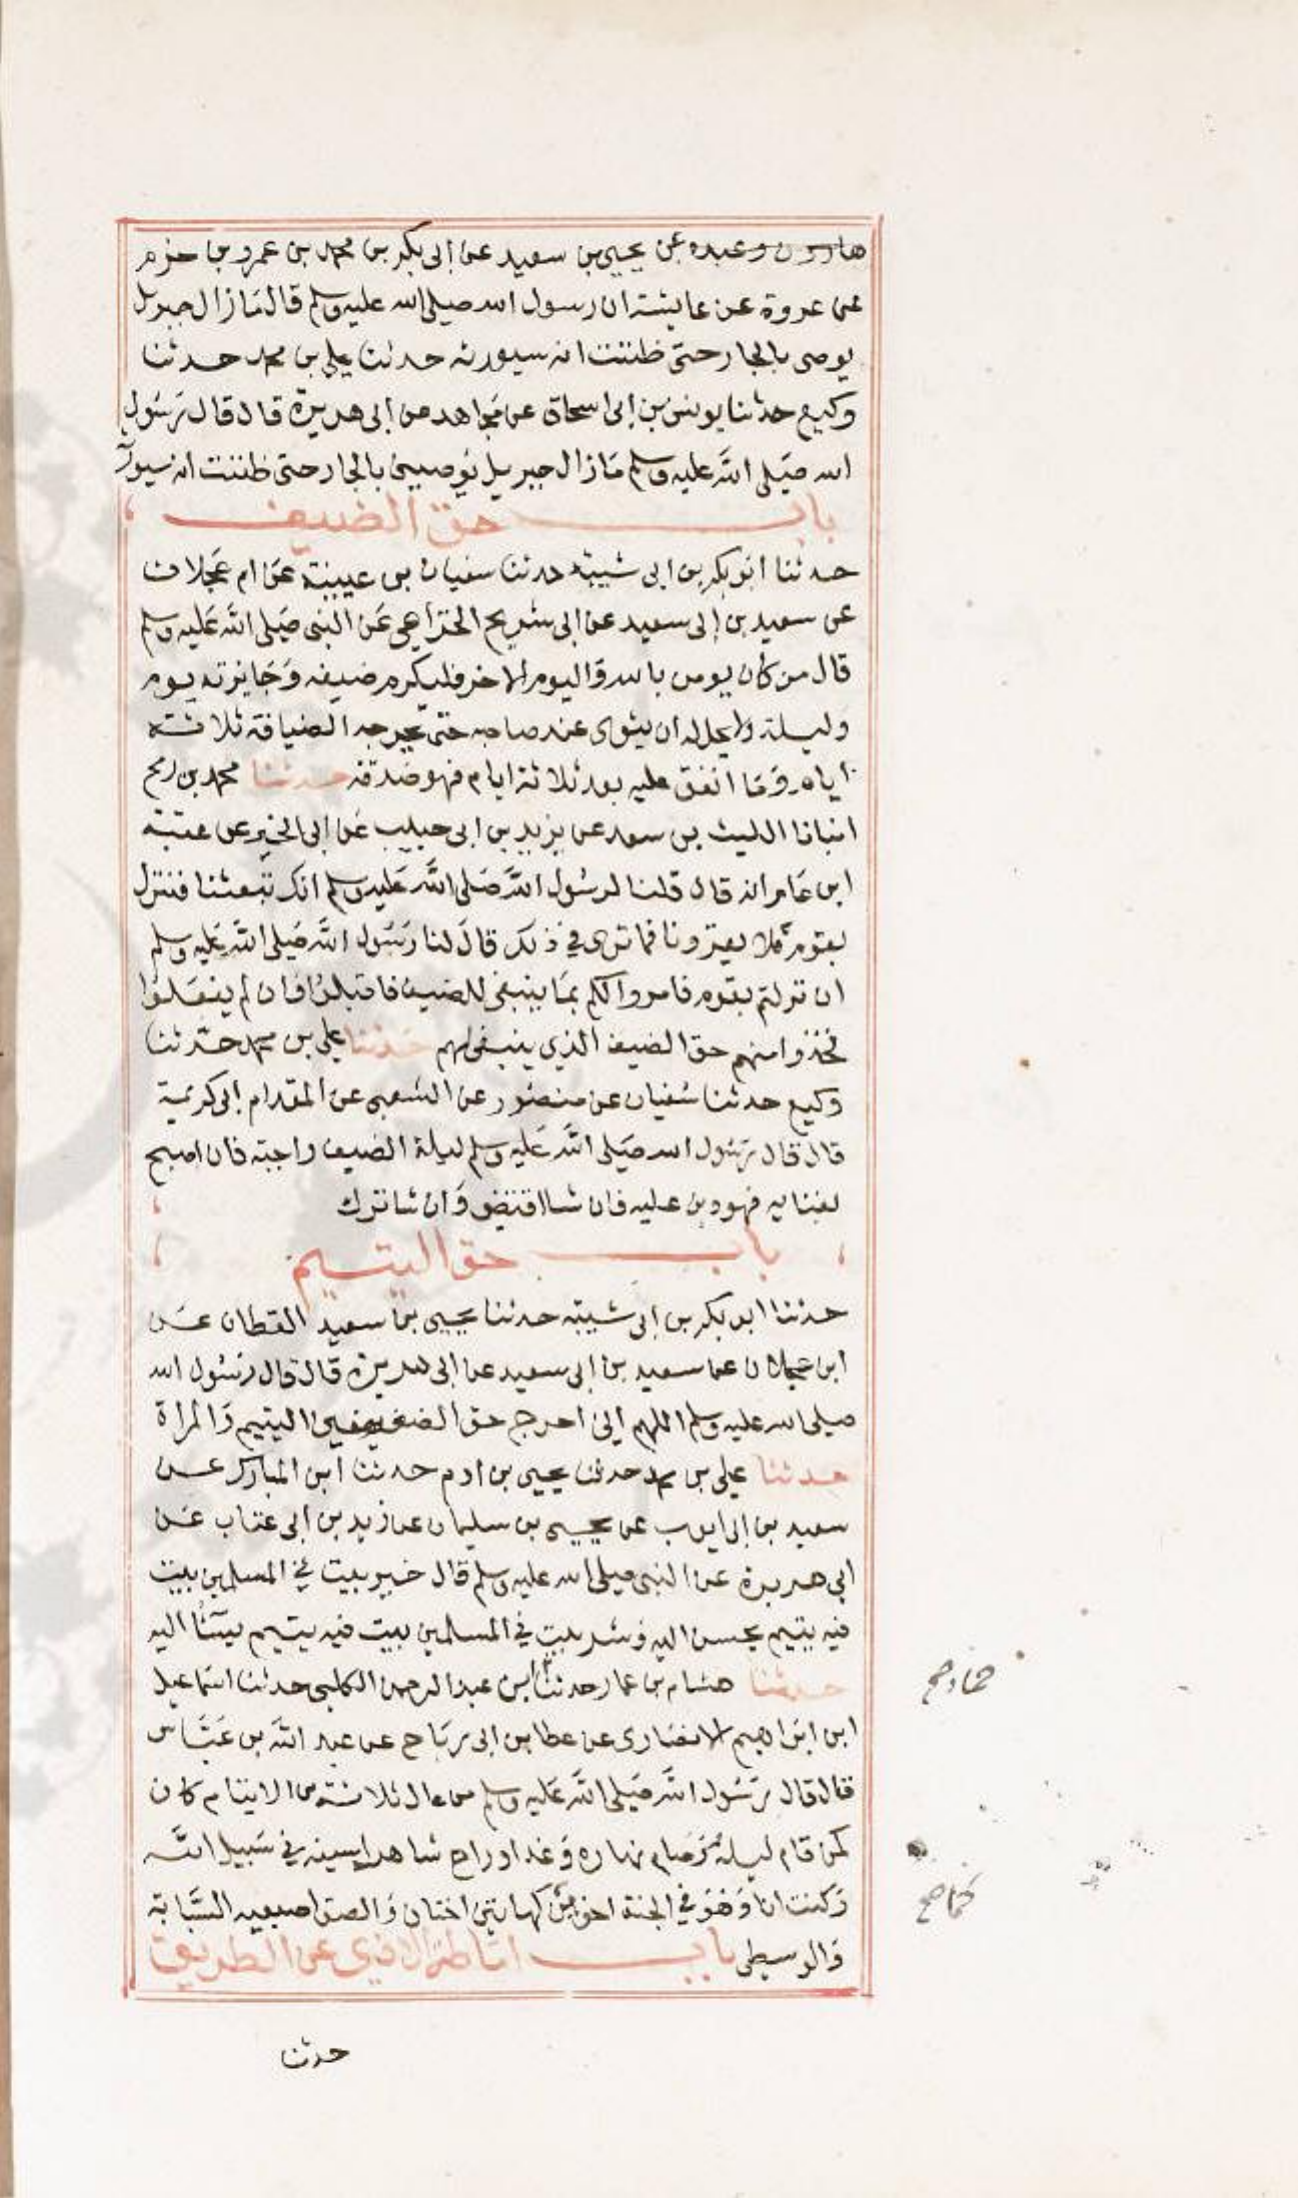 هارون وعبده عن يحيى بن سعيد عن ابى بكر بن محمد بن عمرو بن حزم
عن عروة عن عايشة ان رسول الله صلى الله عليه وسلم قال مَا زال جبريل
يوصى بالجار حتى ظننت انه سيورثه حدثنا على بن محمد حدثنا
وكيع حدثنا يونس بن ابى اسحاق عن مجاهد عن ابى هريرة قال قال رَسُول
الله صَلى الله عليه وسلم مَا زال جبريل يُوصيني بالجار حتى ظننت انه سيور
باب حق الضيف
حدثنا ابو بكر بن ابى شيبة حدثنا سفيان بن عيينة عن ام عجلان
عن سعيد بن ابى سعيد عن ابى شريح الخزاعى عَن النبى صَلى الله عَليه وسلم
قال من كان يومن بالله وَاليوم الاخر فليكرم ضيفه وَجَايزته يوم
وليلة ولايحل له ان يثوى عند صاحبه حتى يحرجه الضيافة ثلاثة
اياه وَمَا انفق عليه بعد ثلاثة ايام فهو صَدقة حدثنا محمد بن رمح
انبانا الليث بن سعد عن يزيد بن ابى حبيب عَن ابى الخير عن عقبة
ابن عَامر انه قال قلنا لرسُول اللهَ صَلى اللهَ عَليه وسلم انك تبعثنا فننزل
بقوم فلا يقرونا فما ترى في ذلك قالَ لنا رَسُول اللهَ صَلى اللهَ عَليه وسلم
ان نزلتم بقوم فامروا لكم بمَا ينبغى للضيف فاقبلوُا فان لم يفعَلوُا
فخذوا منهم حق الضيف الذي ينبغى لهم حَدثنا على بن محمد حدّثنا
وكيع حدثنا سُفيان عن منصُور عن الشعبى عن المقدام ابى كريمة
قال قال رَسُول الله صَلى اللهَ عَليه وسلم ليلة الضيف واجبة فان اصبح
بفنايه فهو دين عليه فان شا اقتضى وَان شا ترك
باب حق اليتيم
حدثنا ابو بكر بن ابى شيبة حدثنا يحيى بن سعيد القطان عَن
ابن عجلان عن سعيد بن ابى سعيد عن ابى هريرة قال قال رسُول الله
صلى الله عليه وسلم اللهم انى احرج حق الضعيفين اليتيم وَالمراة
حدثنا على بن محمد حدثنا يحيى بن ادم حدثنا ابن المبارك عن
سعيد بن ابى ايوب عن يحيى بن سليمان عن زيد بن ابى عتاب عَن
ابى هريرة عن النبى صلى الله عليه وسلم قال خير بيت في المسلمين بيت
فيه يتيم يحسن اليه وَشر بيت في المسلمين بيت فيه يتيم يسَآُ اليه
حدثنا هشام بن عمار حدثنا ابن عبد الرحمن الكلبى حدثنا اسمَاعيل
ابن ابرَاهيم الانصَارى عن عطا بن ابى رَبَاح عن عبد الله بن عَبَّاس
قال قال رَسُول اللهَ صَلى اللهَ عَليه وسلم من عال ثلاثة من الايتام كان
كمن قام ليله وَصَام نهاره وَغدا وراح شاهرا سيفه في سَبيل الله
وَكنت انا وَهُوَ في الجنة اخوين كهاتين اختان وَالصق اصبعيه السَّبَابة
وَالوسطى باب امَاطة الاذى عن الطريق
حدثنا